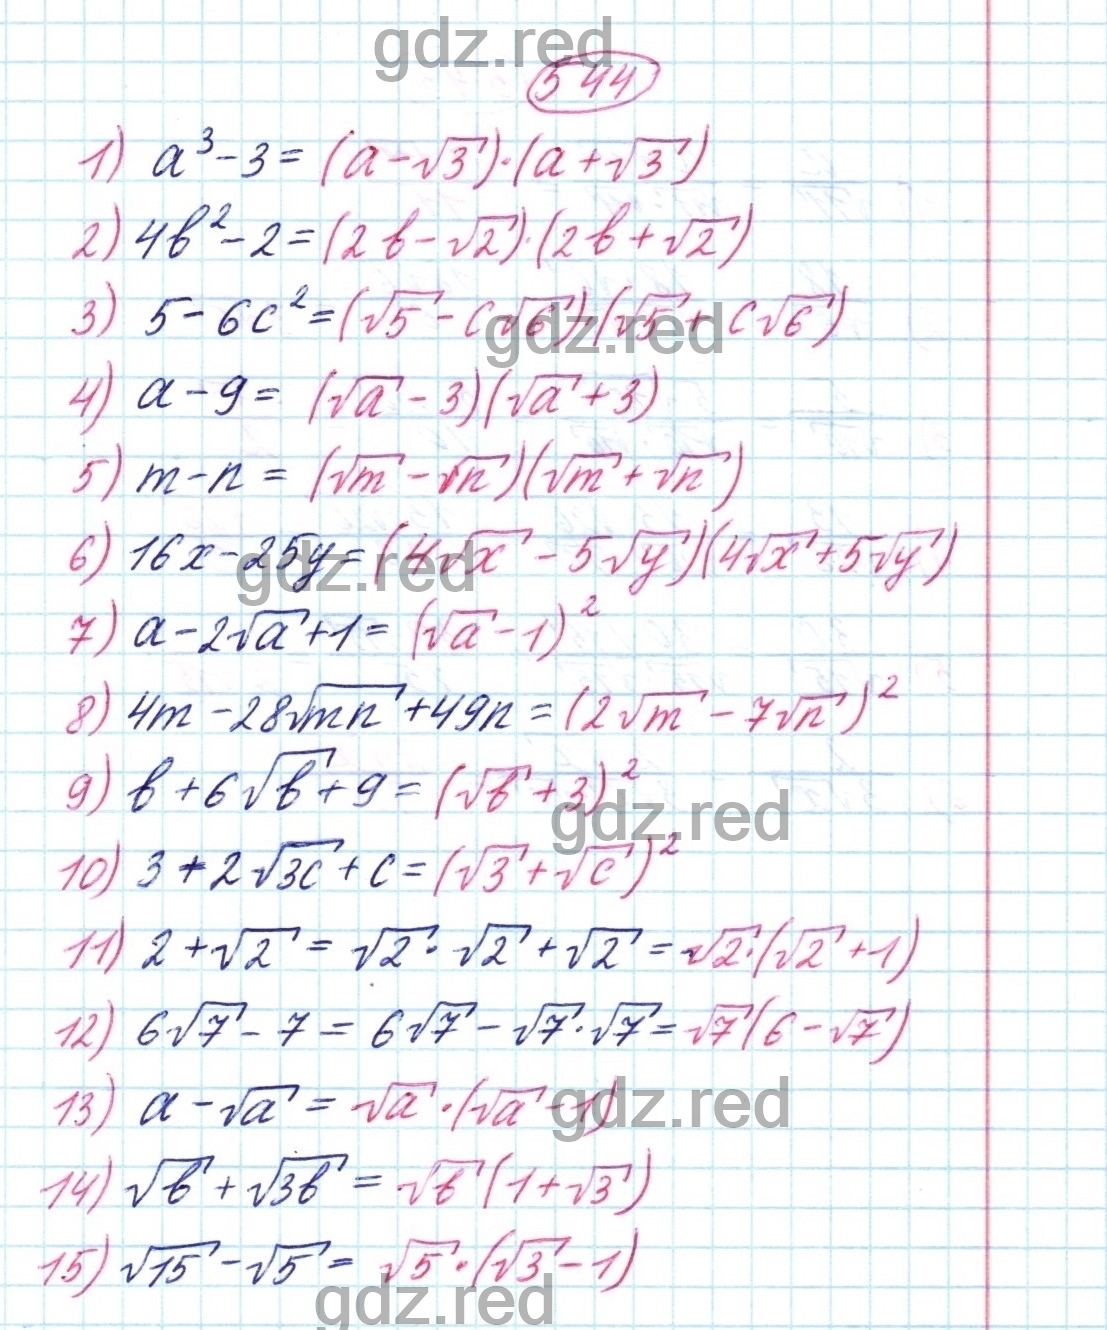 gdz.red
544
1) a³ - 3 = (a - √3)·(a + √3)
2) 4b² - 2 = (2b - √2)·(2b + √2)
3) 5 - 6c² = (√5 - c√6)(√5 + c√6)
gdz.red
4) a - 9 = (√a - 3)(√a + 3)
5) m - n = (√m - √n)(√m + √n)
6) 16x - 25y = (4√x - 5√y)(4√x + 5√y)
gdz.red
7) a - 2√a + 1 = (√a - 1)²
8) 4m - 28√mn + 49n = (2√m - 7√n)²
9) b + 6√b + 9 = (√b + 3)²
gdz.red
10) 3 + 2√3c + c = (√3 + √c)²
11) 2 + √2 = √2·√2 + √2 = √2·(√2 + 1)
12) 6√7 - 7 = 6√7 - √7·√7 = √7(6 - √7)
13) a - √a = √a·(√a - 1)
gdz.red
14) √b + √3b = √b(1 + √3)
15) √15 - √5 = √5·(√3 - 1)
gdz.red